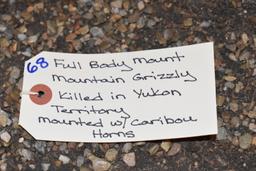 68 Full Body Mount
Mountain Grizzly
Killed in Yukon
Territory
mounted w/ Caribou
Horns